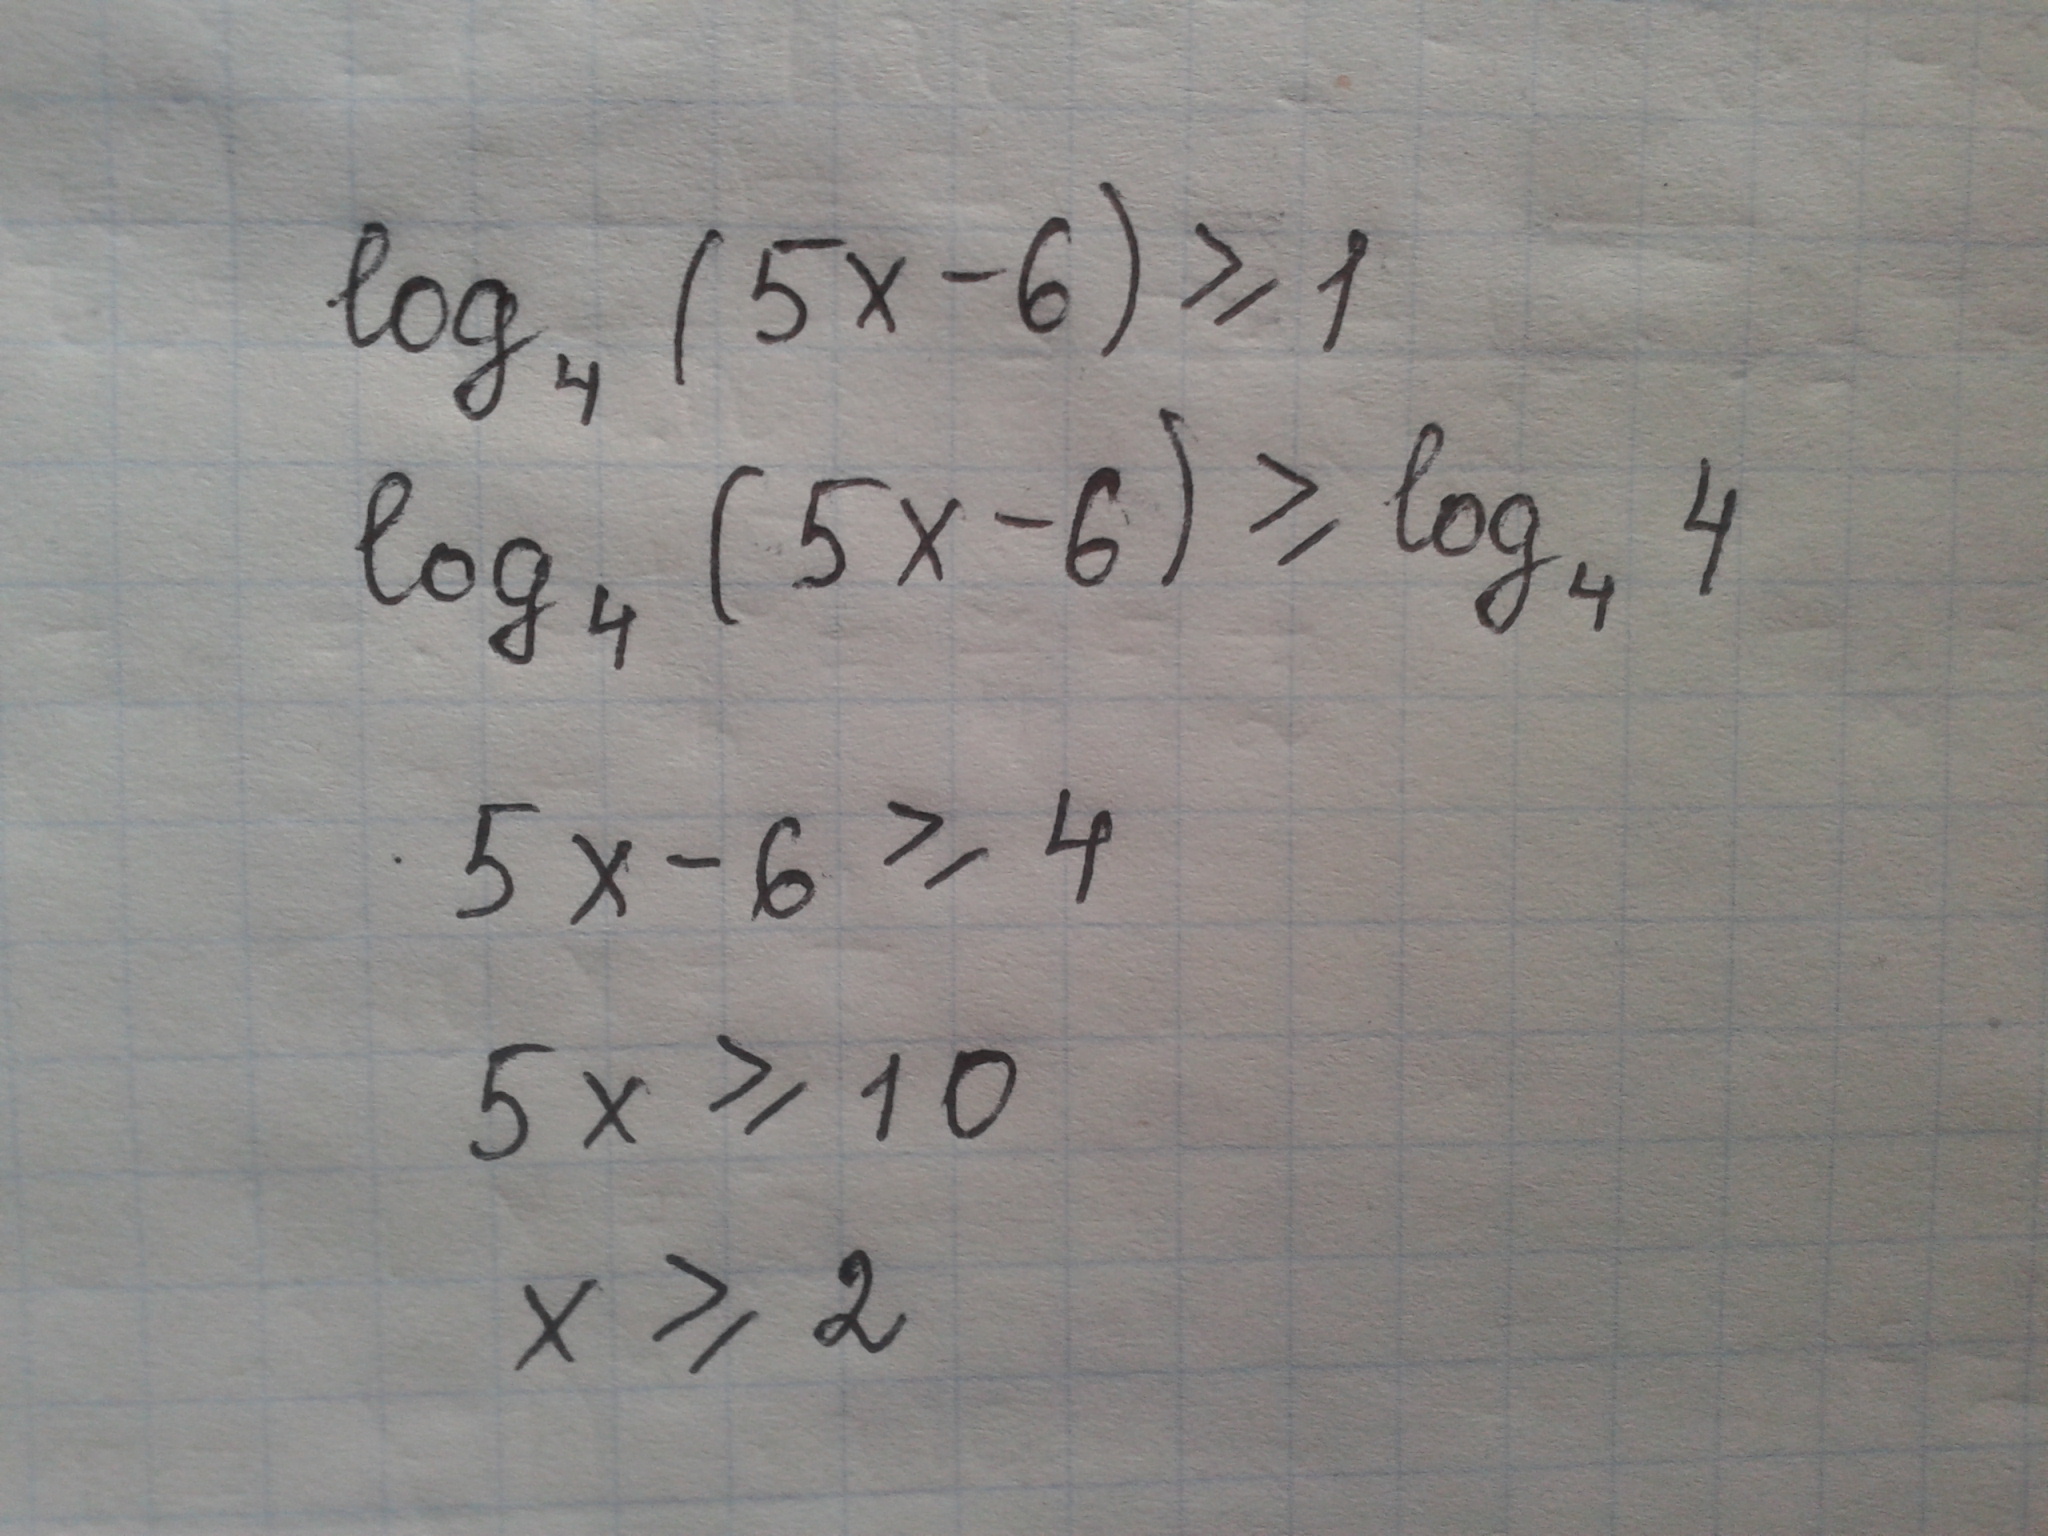 log₄ (5x-6) ⩾ 1
log₄ (5x-6) ⩾ log₄ 4
5x-6 ⩾ 4
5x ⩾ 10
x ⩾ 2